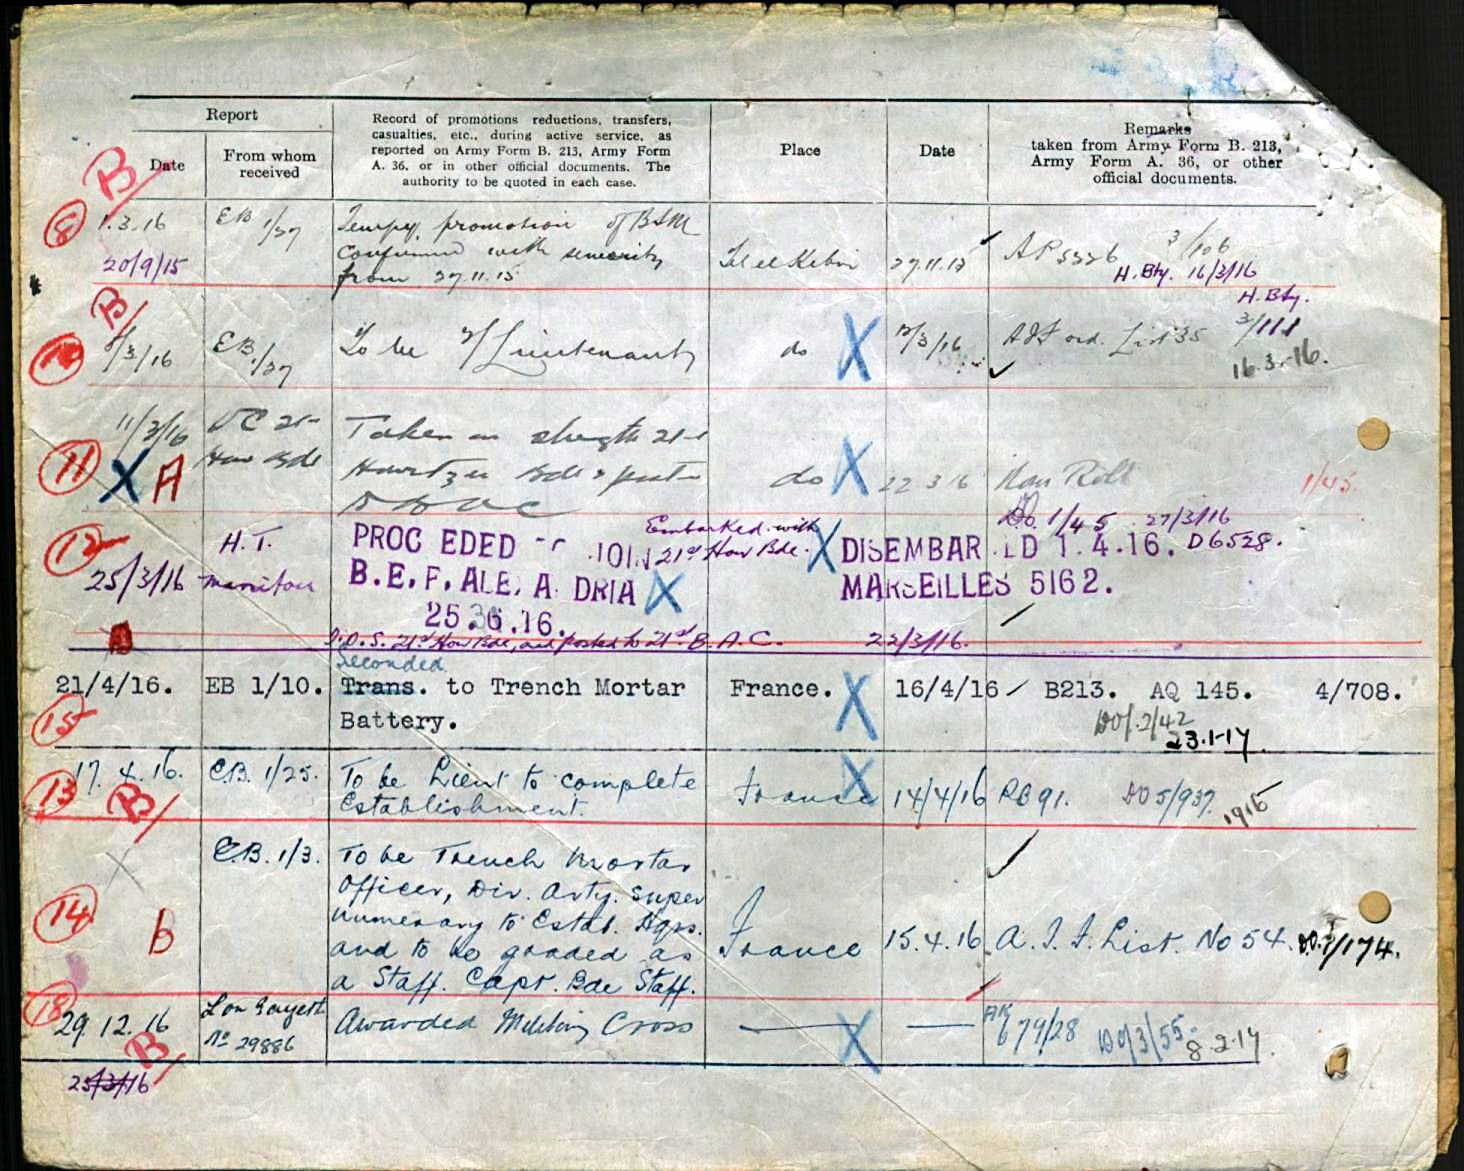 Report
Date
From whom
received
Record of promotions reductions, transfers,
casualties, etc., during active service, as
reported on Army Form B. 213, Army Form
A. 36, or in other official documents. The
authority to be quoted in each case.
Place
Date
Remarks
taken from Army Form B. 213,
Army Form A. 36, or other
official documents.
B
1.3.16
20/9/15
EB 1/37
Tempy. promotion of BSM
confirmed with seniority
from 27.11.15
Tel el Kebir
27.11.15
3/106
H. Bty. 16/3/16
B
10
/3/16
EB 1/37
To be 2/Lieutenant
do
X
12/3/16
AIF ord. List 35
H. Bty.
3/111
16.3.16.
11
X A
11/3/16
OC 21st
How Bde
Taken on strength 21st
Howitzer Bde & post
do
X
22 3 16
Nom Roll
1/45
12
25/3/16
H. T.
Manitou
PROC EDED JOIN
B.E.F. ALE. A DRIA
25.3.16.
Embarked with
21st How Bde.
X
X
DISEMBAR ED 1.4.16.
MARSEILLES 5162.
DO. 1/45 27/3/16
D6528.
T.O.S. 21st How Bde, and posted to 21st B.A.C. 22/3/16.
15
21/4/16.
EB 1/10.
Seconded
Trans. to Trench Mortar
Battery.
France.
X
16/4/16
B213. AQ 145. 4/708.
DO/.2/42
23.1.17.
13
17. 4. 16.
B
E.B. 1/25.
To be Lieut to complete
Establishment.
France
X
14/4/16
RB 91. DO 5/937
1915
14
X
B
E.B. 1/3.
To be Trench Mortar
Officer, Div. Arty. Super
numerary to Estab. Hqrs.
and to be graded as
a Staff. Capt. Bde Staff.
France
15.4.16
A.I.F. List. No 54.
DO. 1/174.
18
29 12. 16
B
Lon Gazette
No 29886
Awarded Military Cross
X
AK
679/28
DO/3/55
8.2.17.
25/3/16